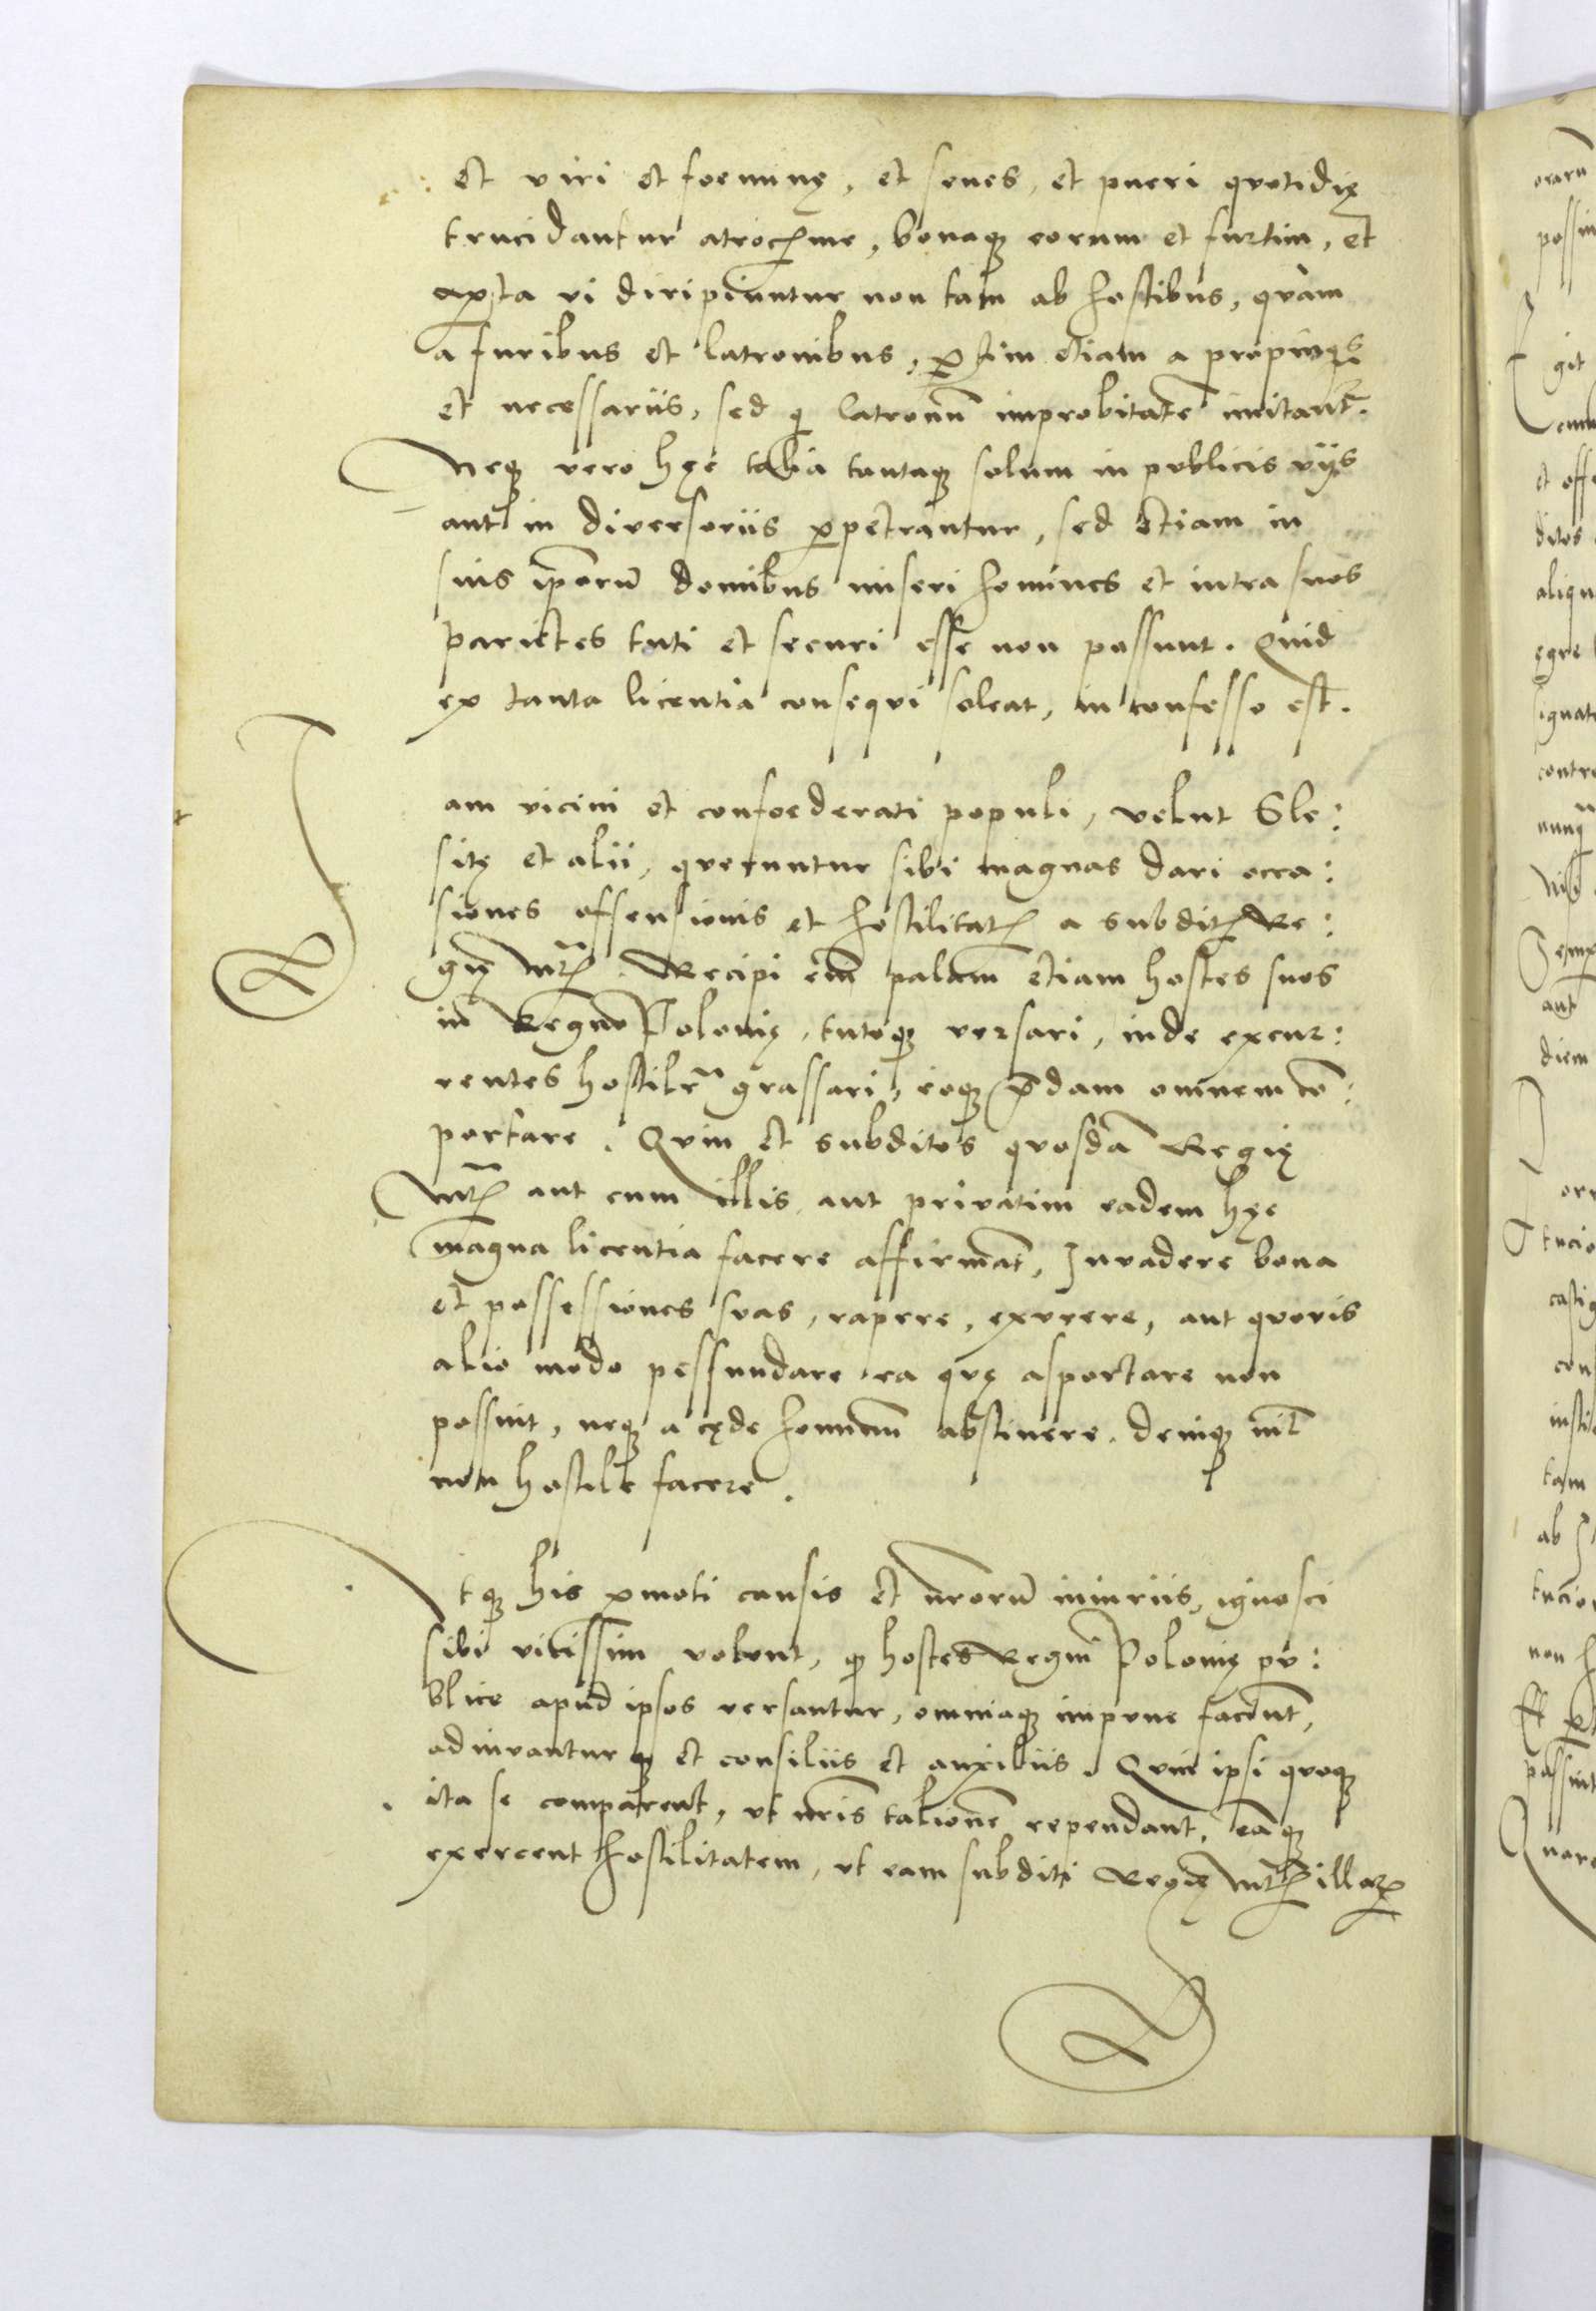 et viri et foeminę, et senes, et pueri quotidię
trucidantur atrociss̃ime, bonaqꝫ eorum et furtim, et
aꝑta vi diripiuntur non tam ab hostibus, quam
a furibus et latronibus, ꝑtim etiam a propinqs
et necessariis, sed qi latronũ improbitatẽ imitant̃.
Neqꝫ vero hęc talia tantaqꝫ solum in publicis vijs
aut in diversoriis ꝑpetrantur, sed etiam in
suis ip̃orũ domibus miseri homines et intra suos
parietes tuti et securi esse non possunt. Quid
ex tanta licentia consequi soleat, in confesso est.
Iam vicini et confoederati populi, velut Sle:
sitę et alii, queruntur sibi magnas dari occa:
siones offensionis et hostilitatꝭ a subditꝭ Re:
gię Mtꝭ. Recipi em̃ palam etiam hostes suos
in Regno Polonię, tutoqꝫ versari, inde excur:
rentes hostilr̃ grassari, eoqꝫ p̃dam omnem cõ:
portare. Quin et subditos quosdã Regię
Mtꝭ aut cum illis aut privatim eadem hęc
magna licentia facere affirmãt, Invadere bona
et possessiones suas, rapere, exurere, aut quovis
alio modo pessundare ea quę asportare non
possint, neqꝫ a cęde hominum abstinere. deniqꝫ nil̃
non hostile facere.
Atqꝫ his ꝑmoti causis et nr̃orũ iniuriis, ignosci
sibi vicissim volunt, qꝫ hostes Regni Polonię pu:
blice apud ipsos versantur, omniaqꝫ impune faciunt,
adiuvanturqꝫ et consiliis et auxiliis. Quin ipsi quoqꝫ
ita se comparent, ut nr̃is talionẽ rependant, eãqꝫ
exercent hostilitatem, ut eam subditi Regię Mtꝭ illaꝝ